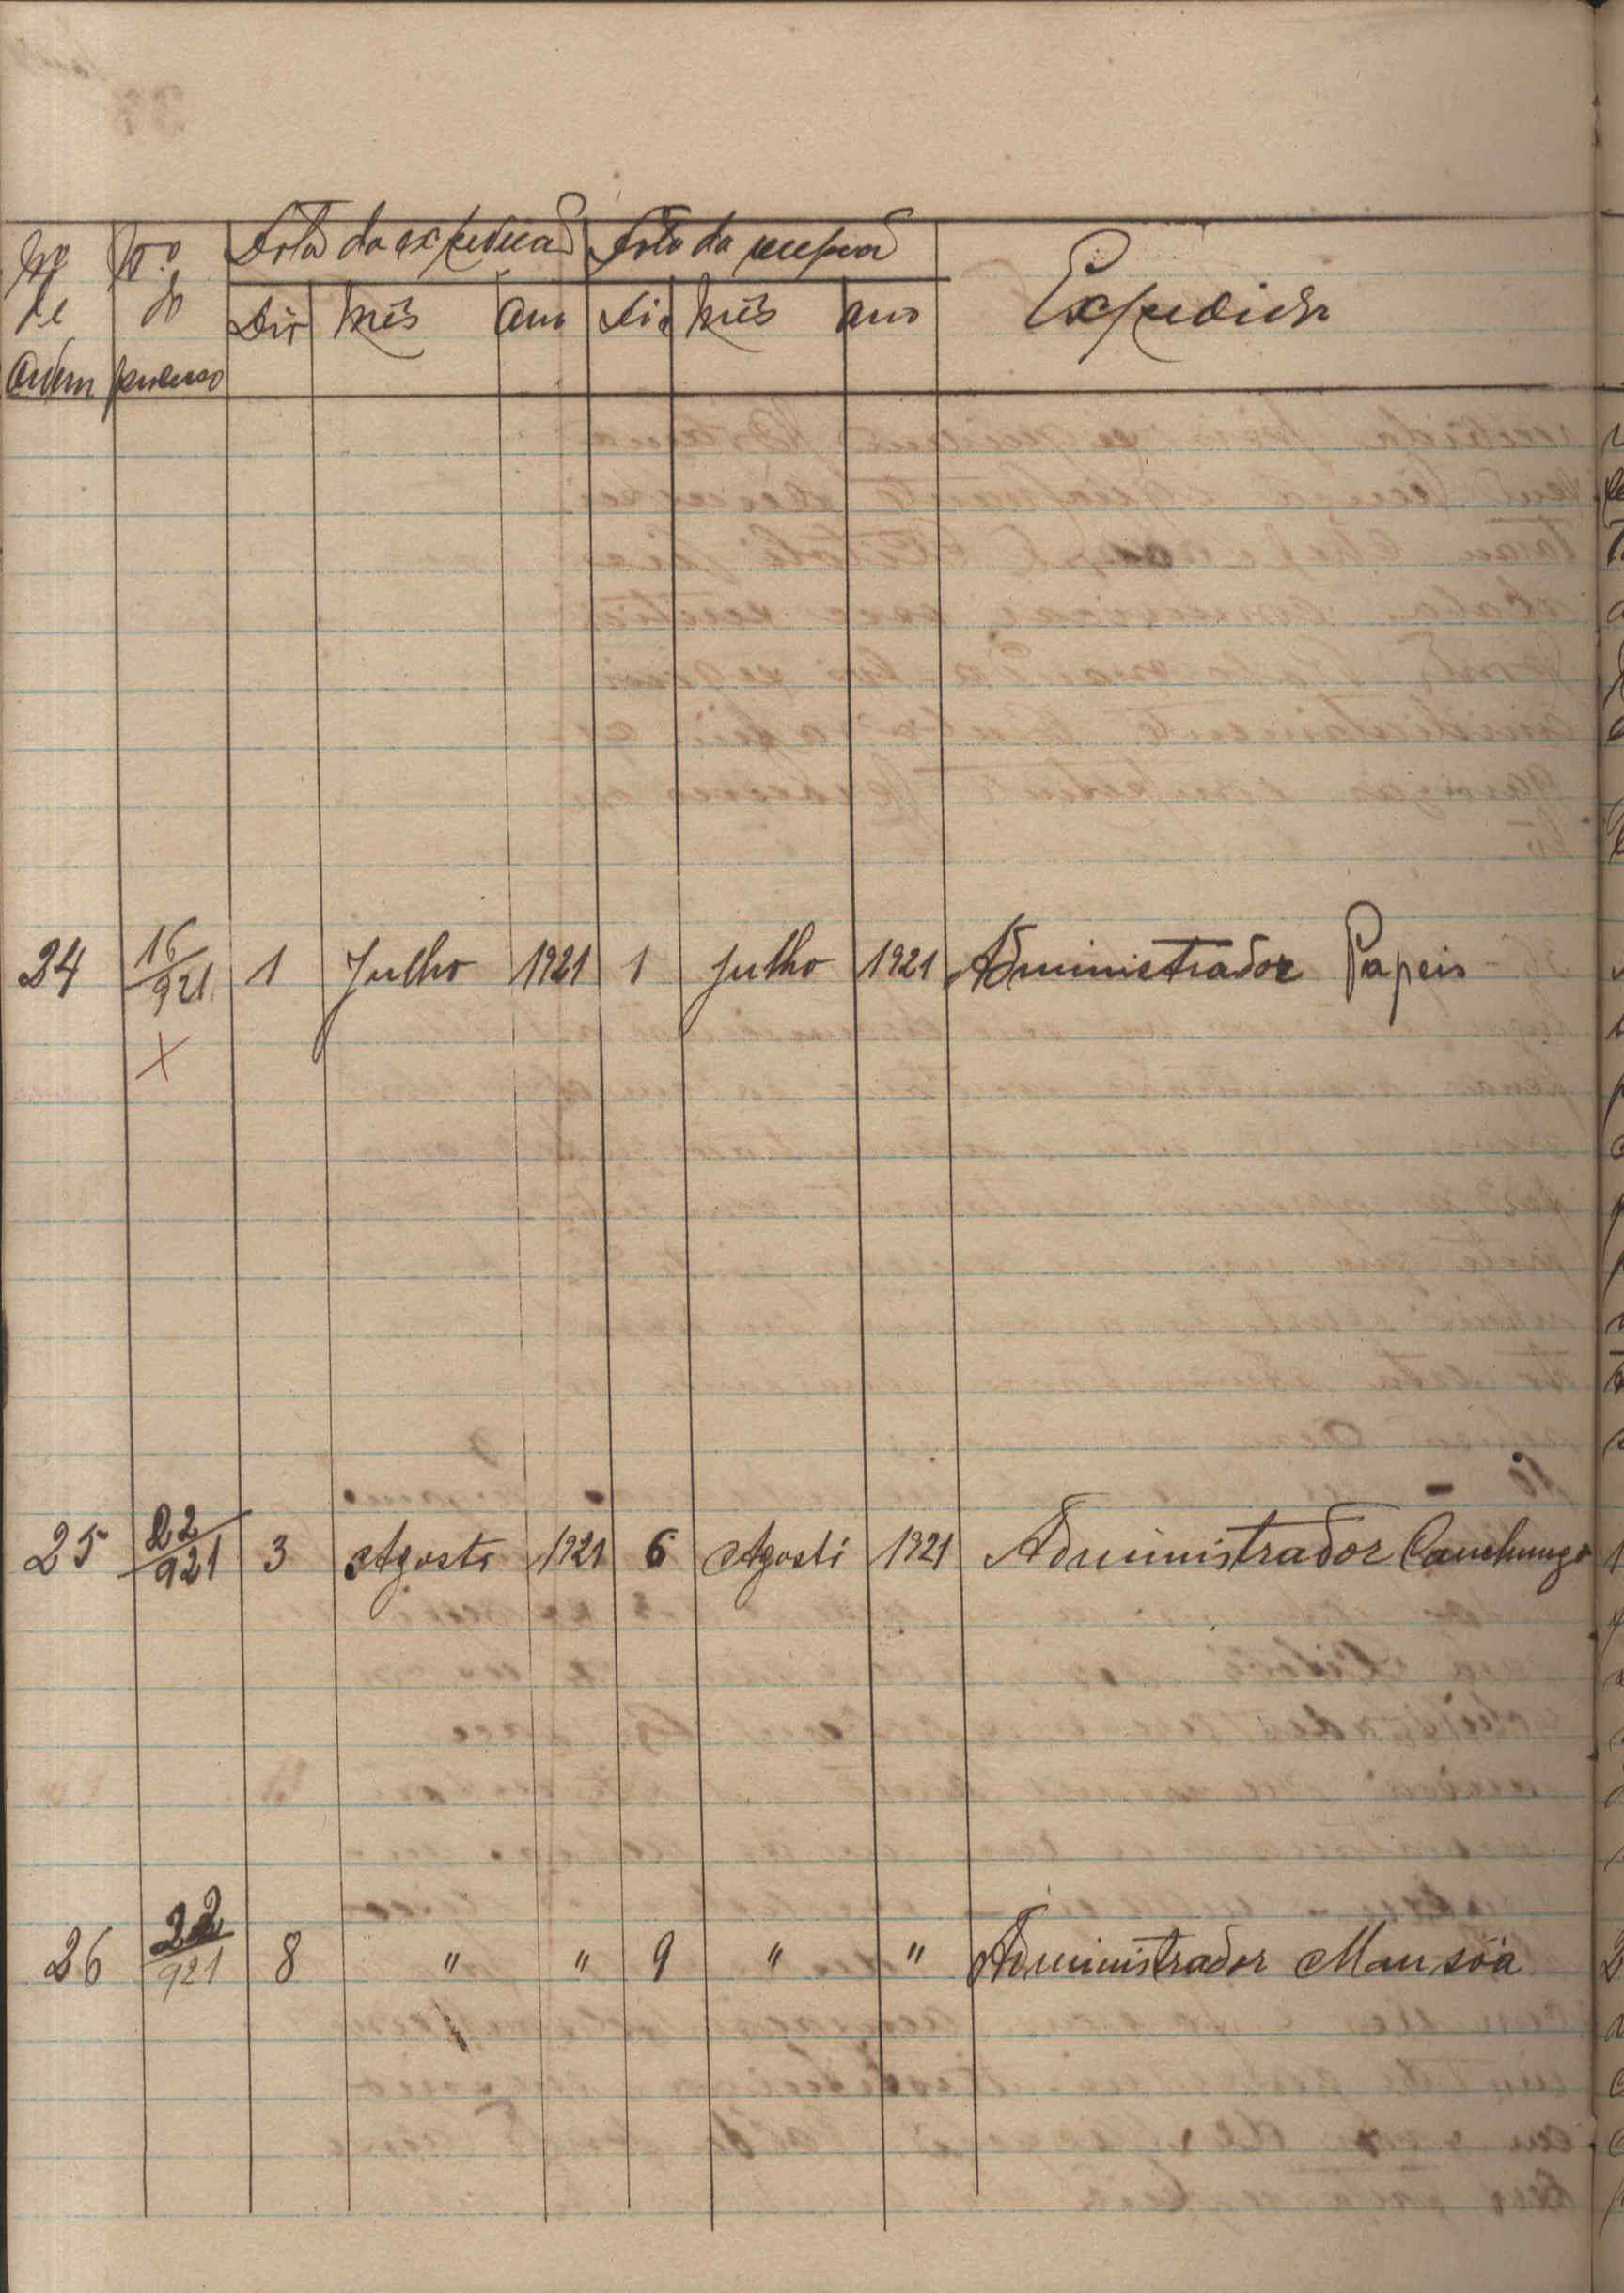 Nº Nº Data da expedição Data da recepção
de do Dia Mês Ano Dia Mês Ano Expedidor
Ordem processo
24 16/921 1 Julho 1921 1 Julho 1921 Administrador Papeis
X
25 22/921 3 Agosto 1921 6 Agosto 1921 Administrador Canchungo
26 22/921 8 " " 9 " " Administrador Mansôa